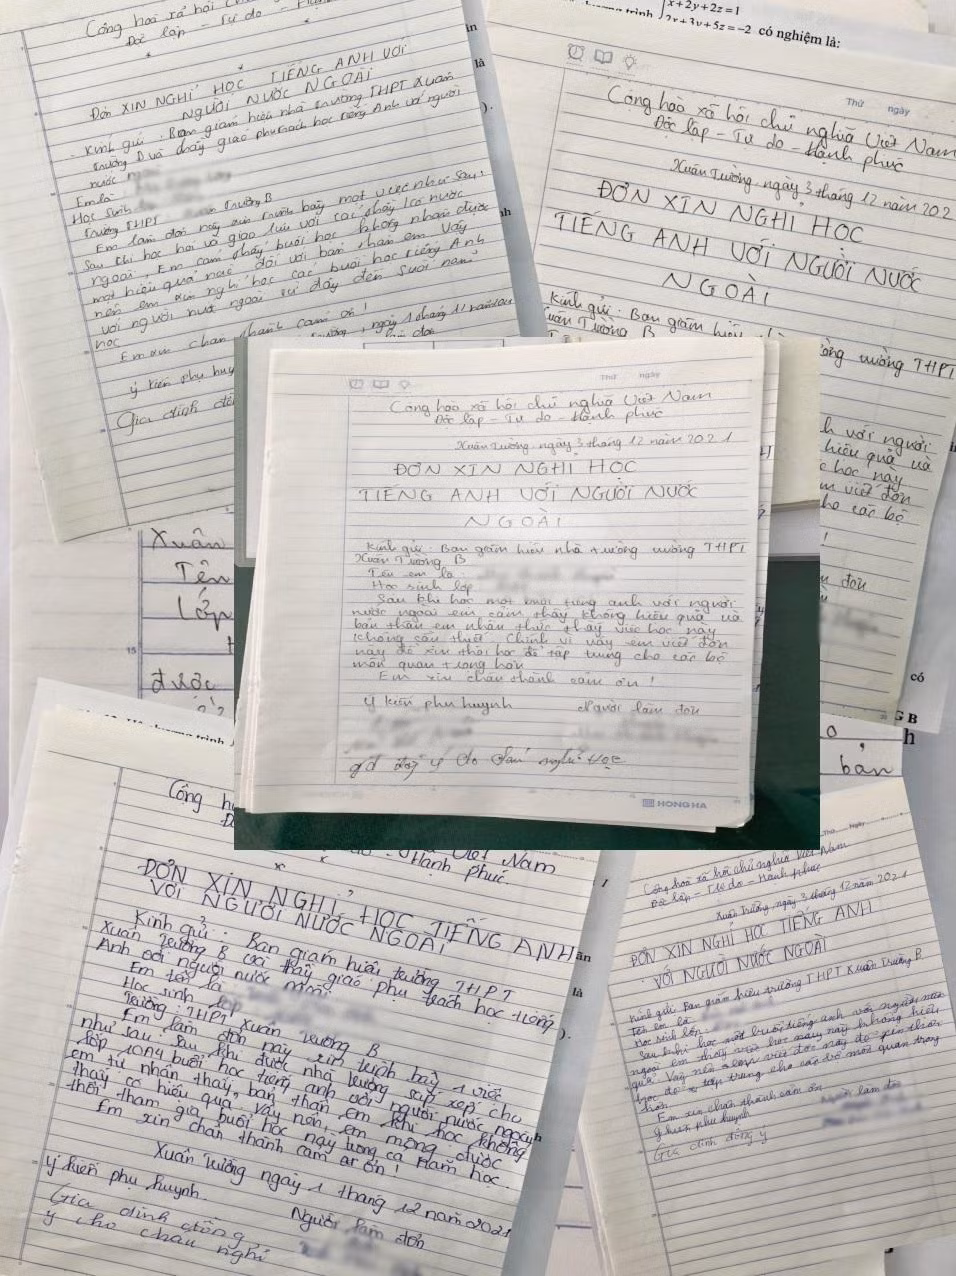 Cộng hoà xã hội
Độc lập Tự do -
ĐƠN XIN NGHỈ HỌC TIẾNG ANH VỚI
NGƯỜI NƯỚC NGOÀI
Kính gửi: Ban giám hiệu nhà trường THPT Xuân
trường B và thầy giáo phụ trách học tiếng Anh với người
nước
Em là
Học sinh
trường THPT trường B
Em làm đơn này xin trình bày một việc như sau:
Sau khi học hỏi và giao lưu với các thầy cô nước
ngoài, Em cảm thấy buổi học không nhận được
một hiệu quả nào đối với bản thân em. Vậy
nên em xin nghỉ học các buổi học tiếng Anh
với người nước ngoài từ đây đến cuối năm
học
Em xin chân thành cảm ơn!
ngày 1 tháng 12 năm
ý kiến phụ huy
Gia đình đồn
x+2y+2z=1
2x+3y+5z=-2 có nghiệm là:
Thứ ngày
Cộng hòa xã hội chủ nghĩa Việt Nam
Độc lập - Tự do - Hạnh phúc
Xuân Trường, ngày 3 tháng 12 năm 202
ĐƠN XIN NGHỈ HỌC
TIẾNG ANH VỚI NGƯỜI NƯỚC
NGOÀI
Kính gửi: Ban giám hiệu
Xuân Trường B
trường THPT
với người
hiệu quả và
học này
em viết đơn
cho các bộ
đơn
Thứ ngày
Cộng hòa xã hội chủ nghĩa Việt Nam
Độc lập - Tự do - Hạnh phúc
Xuân Trường, ngày 3 tháng 12 năm 2021
ĐƠN XIN NGHỈ HỌC
TIẾNG ANH VỚI NGƯỜI NƯỚC
NGOÀI
Kính gửi: Ban giám hiệu nhà trường trường THPT
Xuân Trường B
Tên em là:
Học sinh lớp
Sau khi học một buổi tiếng anh với người
nước ngoài em cảm thấy không hiệu quả và
bản thân em nhận thức thấy việc học này
không cần thiết. Chính vì vậy em viết đơn
này để xin thôi học để tập trung cho các bộ
môn quan trọng hơn
Em xin chân thành cảm ơn!
ý kiến phụ huynh Người làm đơn
gđ đồng ý cho cháu nghỉ học
HONG HA
Xuân
Tên
Lớp
được
có
G B
bản
Cộng h
Việt Nam
Hạnh phúc.
ĐƠN XIN NGHỈ HỌC TIẾNG ANH
VỚI NGƯỜI NƯỚC NGOÀI
Kính gửi: Ban giám hiệu trường THPT
Xuân Trường B và thầy giáo phụ trách học tiếng
Anh với người nước ngoài
Em tên là
Học sinh lớp
Trường THPT Xuân Trường B
Em làm đơn này xin trình bày 1 việc
như sau: Sau khi được nhà trường sắp xếp cho
lớp 10A4 buổi học tiếng anh với người nước ngoài
em tự nhận thấy, bản thân em khi học không
thấy có hiệu quả. Vậy nên, em mong được
thôi tham gia buổi học này trong cả năm học.
Em xin chân thành cảm ơn!
Xuân Trường ngày 1 tháng 12 năm 2021
ý kiến phụ huynh Người làm đơn
Gia đình đồng
ý cho cháu nghỉ
Thứ Ngày
Cộng hoà xã hội chủ nghĩa Việt Nam
Độc lập - Tự do - Hạnh phúc
Xuân Trường, ngày 3 tháng 12 năm 2021
ĐƠN XIN NGHỈ HỌC TIẾNG ANH
VỚI NGƯỜI NƯỚC NGOÀI
Kính gửi: Ban giám hiệu trường THPT Xuân Trường B
Tên em là:
Học sinh lớp:
Sau khi học một buổi tiếng anh với người nước
ngoài em thấy việc học này này không hiệu
quả. Vậy nên em viết đơn này để xin thôi
học để tập trung cho các bộ môn quan trọng
hơn.
Em xin chân thành cảm ơn
ý kiến phụ huynh Người làm đơn
Gia đình đồng ý